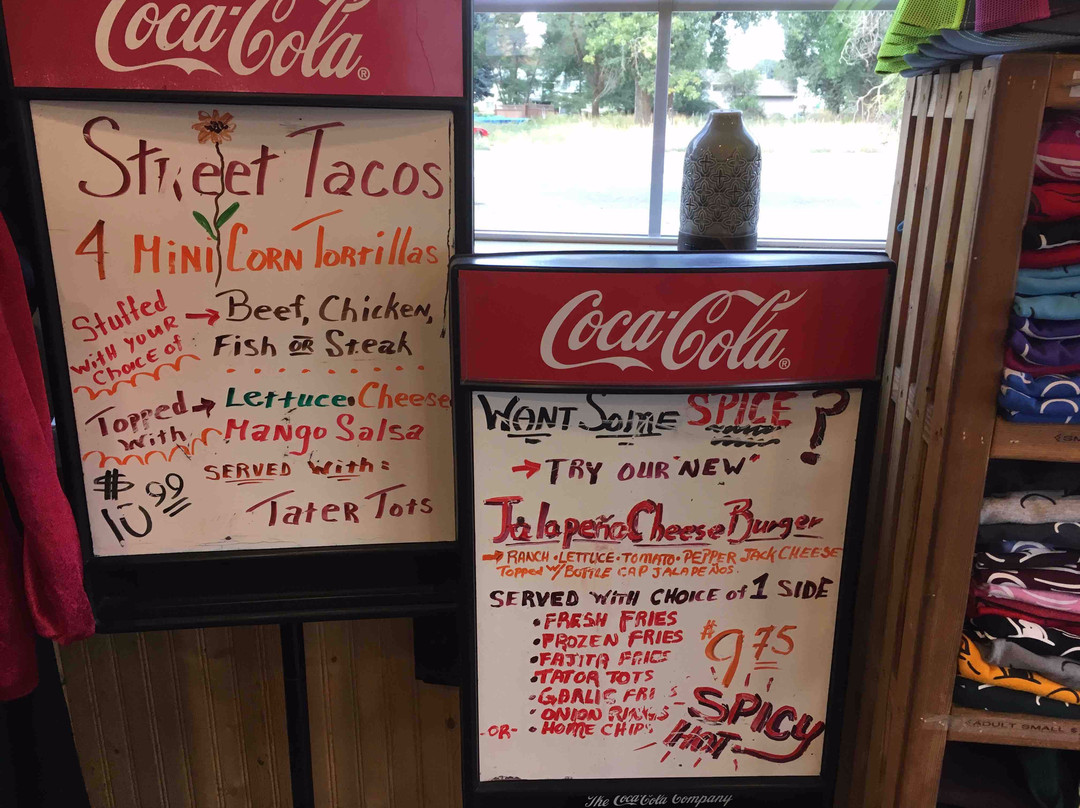 Coca-Cola®
Street Tacos
4 Mini Corn Tortillas
Stuffed
with your
Choice of
→ Beef, Chicken,
Fish or Steak
Topped →
with
Lettuce • Cheese
Mango Salsa
$10.99
SERVED With:
Tater Tots
Coca-Cola®
WANT Some SPICE?
→ TRY OUR "NEW"
Jalapeño Cheese Burger
→ RANCH • LETTUCE • TOMATO • PEPPER JACK CHEESE
Topped W/ BOTTLE CAP JALAPEÑOS.
SERVED WITH CHOICE of 1 SIDE
• FRESH FRIES
• FROZEN FRIES
• FAJITA FRIES
• TATOR TOTS
• GARLIC FRI
• ONION RINGS
-OR- • HOME CHIPS
$9.75
SPICY
HOT
The Coca-Cola Company
ADULT SMALL